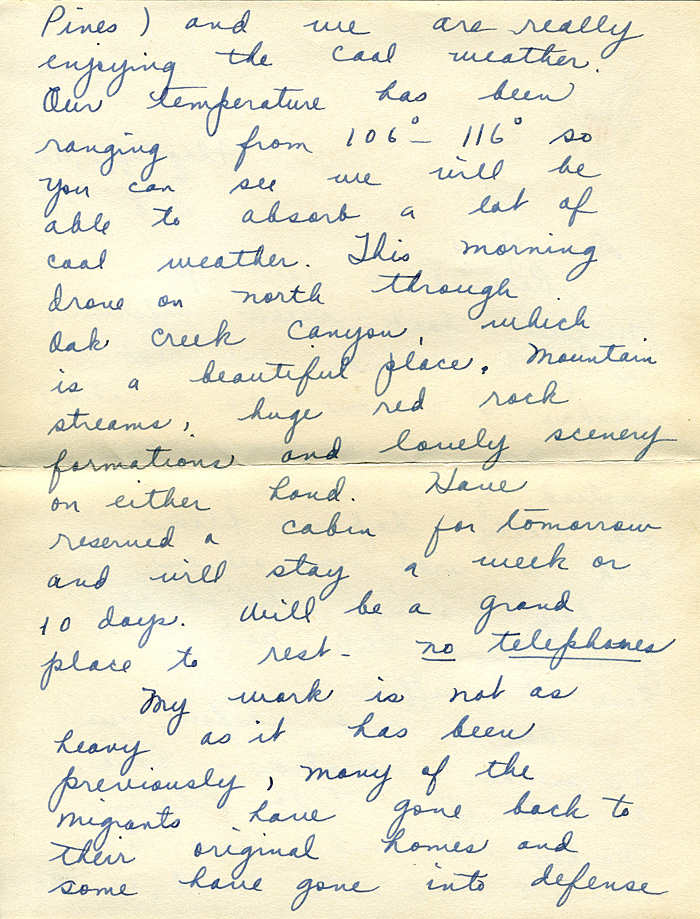 Pines) and we are really
enjoying the cool weather.
Our temperature has been
ranging from 106°– 116° so
you can see we will be
able to absorb a lot of
cool weather. This morning
drove on north through
Oak Creek Canyon, which
is a beautiful place. Mountain
streams, huge red rock
formations and lovely scenery
on either hand. Have
reserved a cabin for tomorrow
and will stay a week or
10 days. Will be a grand
place to rest - no telephones
My work is not as
heavy as it has been
previously, many of the
migrants have gone back to
their original homes and
some have gone into defense